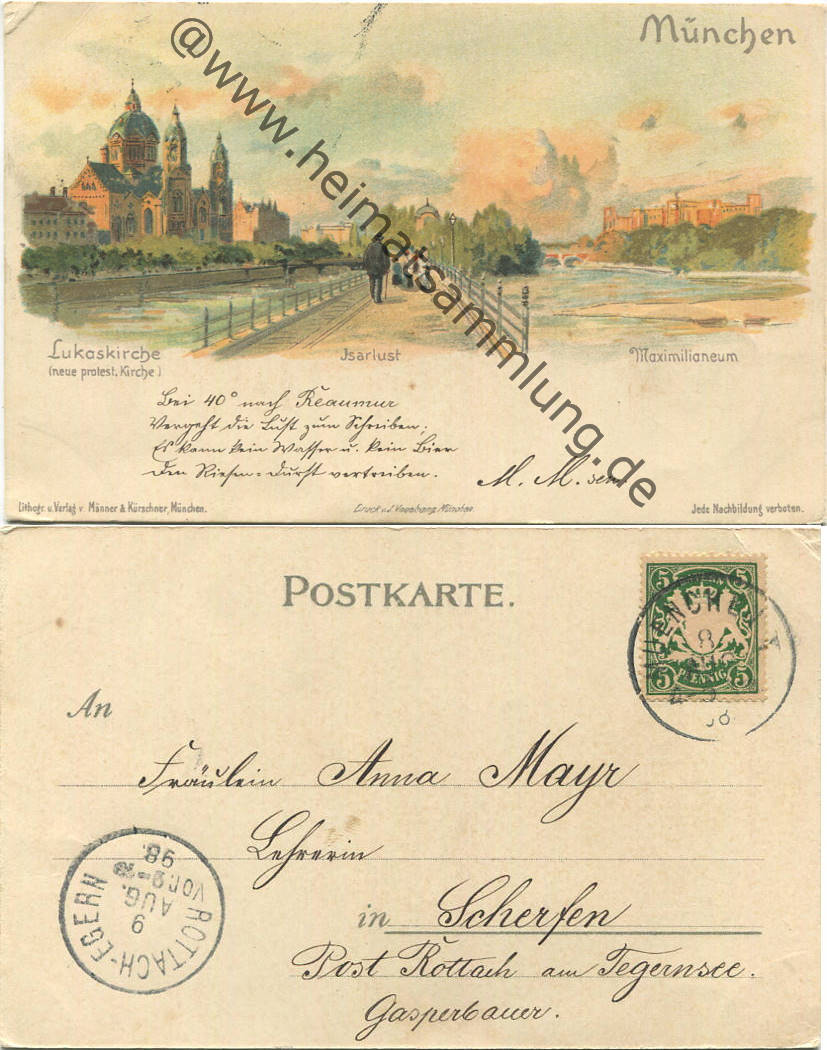 München
@www.heimatsammlung.de
Lukaskirche
(neue protest. Kirche)
Isarlust
Maximilianeum
Bei 40° nach Reaumur
Vergeht die Lust zum Schreiben;
Es kann kein Wasser u. kein Bier
Den Riesen-Durst vertreiben.
M. M. sen.
Lithogr. u. Verlag v. Männer & Kürschner, München.
Druck v. J. München.
Jede Nachbildung verboten.
POSTKARTE.
5 5
5 PFENNIG 5
MUENCHEN
8
An
Fräulein Anna Mayr
Lehrerin
in Scherfen
Post Rottach am Tegernsee.
Gasperbauer.
ROTTACH-EGERN
9
AUG.
VOR.
98.